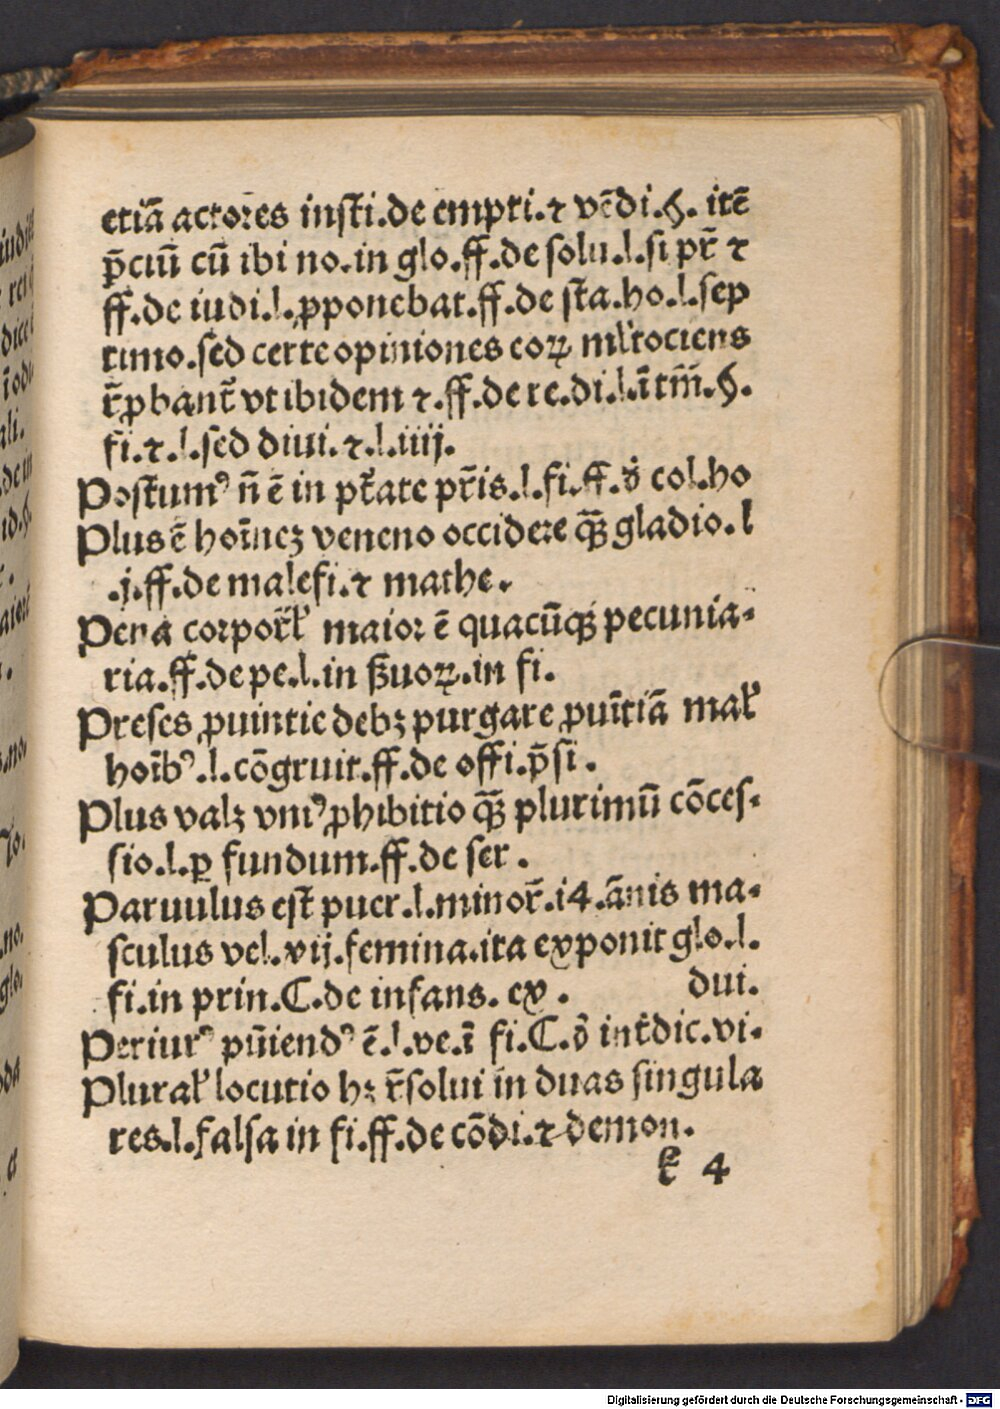 etiā actores insti.de empti.⁊ vēdi.§. itē
p̄ciū cū ibi no.in glo.ff.de solu.l.si pr̄ ⁊
ff.de iudi.l.ꝓponebat.ff.de sta.ho.l.sep
timo.sed certe opiniones eoꝝ ml̓tociens
r̄ꝓbant̄ vt ibidem ⁊.ff.de re.di.l.ītm̄.§.
fi.⁊.l.sed diui.⁊.l.iiij.
Postumꝰ n̄ ē in pt̄ate pr̄is.l.fi.ff.d̓ col.ho
Plus ē hoīnez veneno occidere qꝫ̄ gladio.l
.j.ff.de malefi.⁊ mathe.
Pena corpor̄l̓ maior ē quacūqꝫ pecunia-
ria.ff.de pe.l.in ẞuoꝝ.in fi.
Preses ꝓuintie debꝫ purgare ꝓuītiā mal̓
hoībꝰ.l.cōgruit.ff.de offi.p̄si.
Plus valꝫ vniꝰ ꝓhibitio qꝫ̄ plurimū cōces-
sio.l.ꝑ fundum.ff.de ser.
Paruulus est puer.l.minor̄.i4.ānis ma-
sculus vel.vij.femina.ita exponit glo.l.
fi.in prin.C.de infans. ex. dui.
Periurꝰ pūiendꝰ ē.l.ve.ī fi.C.d̓ int̓dic.vi-
Plural̓ locutio hꝫ r̄solui in duas singula
res.l.falsa in fi.ff.de cōdi.⁊ demon.
k 4
Digitalisierung gefördert durch die Deutsche Forschungsgemeinschaft - DFG